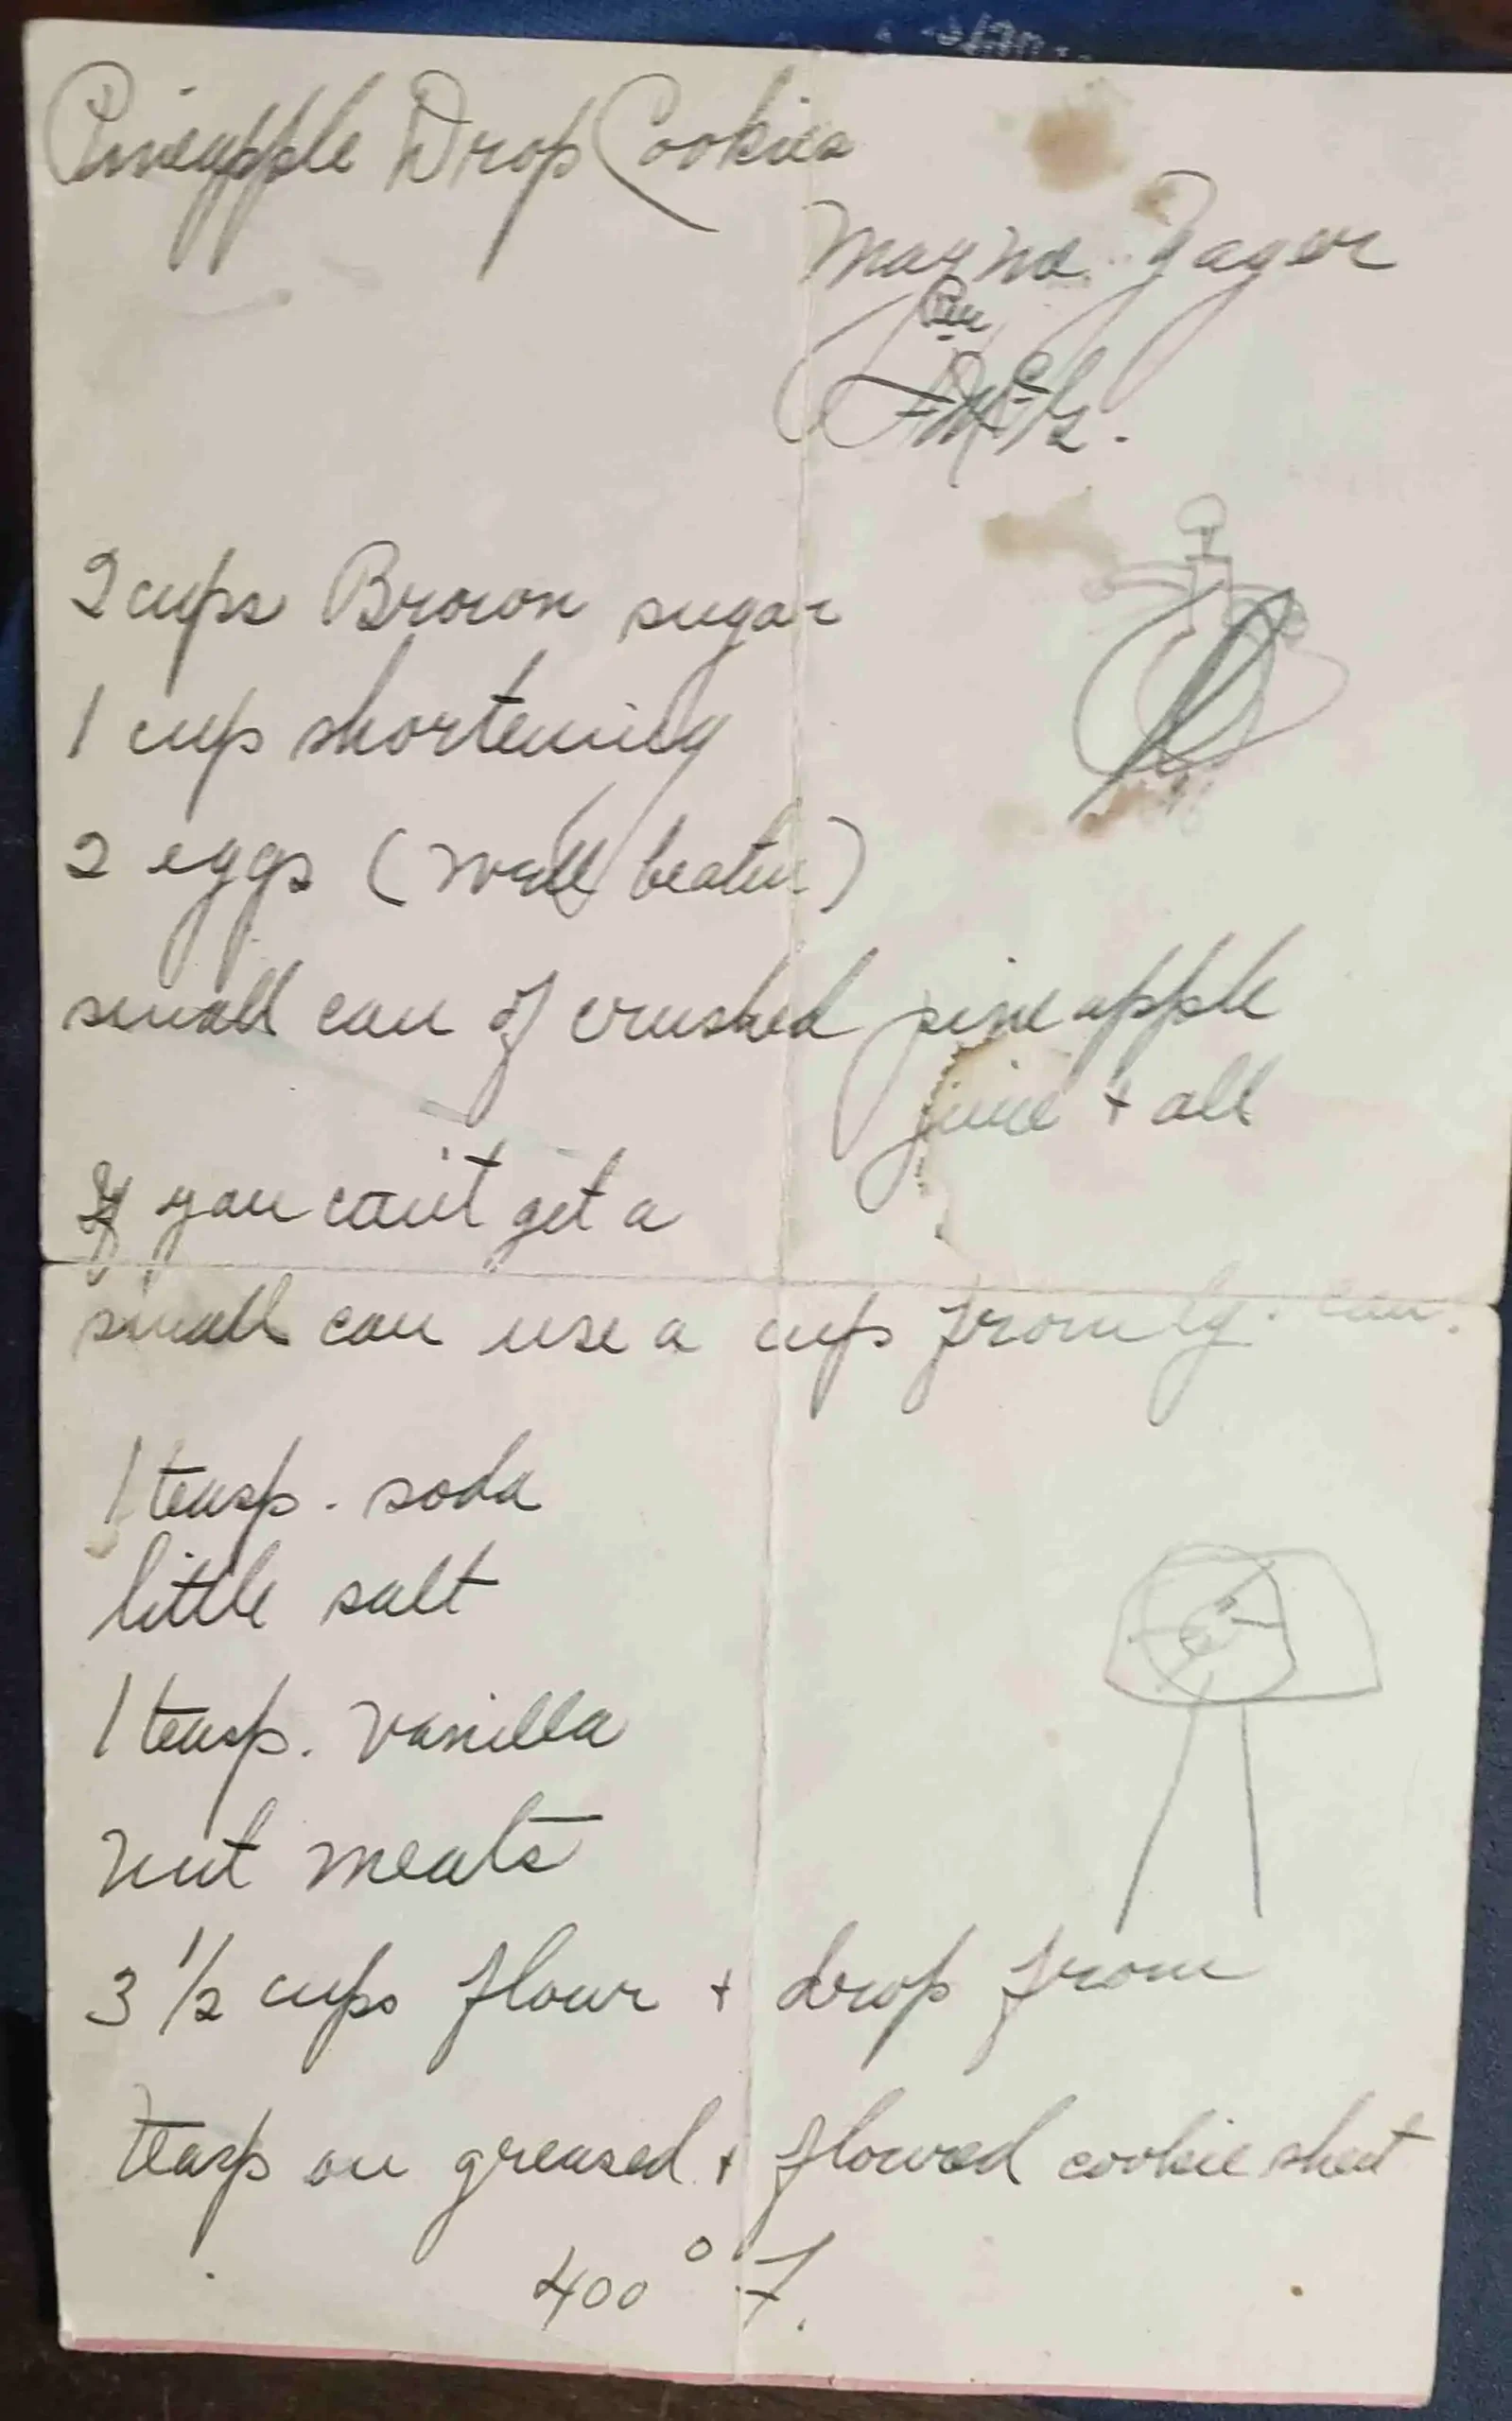 Pineapple Drop Cookies
Mayna Zager
Per
2 cups Brown sugar
1 cup shortening
2 eggs (well beaten)
small can of crushed pineapple
juice + all
If you can't get a
small can use a cup from lg. can.
1 teasp. soda
little salt
1 teasp. vanilla
nut meats
3 1/2 cups flour + drop from
teasp on greased + flowred cookie sheet
400° F.